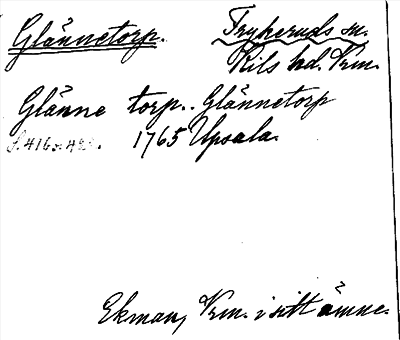 Glännetorp. Frykeruds sn.
Kils hd. Vrm.
Glänne torp. Glännetorp
1765 Upsala.
Ekman, Vrm. i sitt ämne.